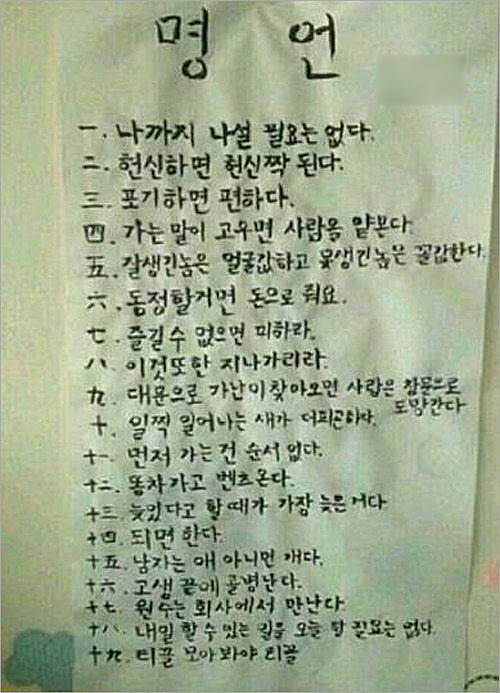 명 언
一. 나까지 나설 필요는 없다.
二. 헌신하면 헌신짝 된다.
三. 포기하면 편하다.
四. 가는 말이 고우면 사람을 얕본다.
五. 잘생긴놈은 얼굴값하고 못생긴놈은 꼴값한다.
六. 동정할거면 돈으로 줘요.
七. 즐길수 없으면 피하라.
八. 이것또한 지나가리라.
九. 대문으로 가난이찾아오면 사람은 창문으로
도망간다
十. 일찍 일어나는 새가 더피곤하다.
十一. 먼저 가는건 순서 없다.
十二. 똥차가고 벤츠온다.
十三. 늦었다고 할때가 가장 늦은거다
十四. 되면 한다.
十五. 남자는 애 아니면 개다.
十六. 고생 끝에 골병난다.
十七. 원수는 회사에서 만난다
十八. 내일 할수 있는 일을 오늘 할 필요는 없다.
十九. 티끌 모아봐야 티끌